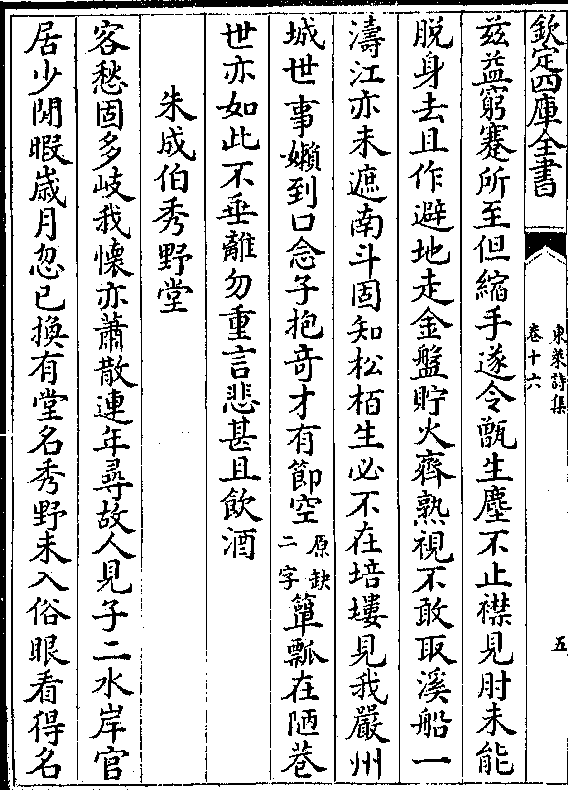 欽定四庫全書
東萊詩集
卷十六
五
茲益窮蹇所至但縮手遂令甑生塵不止襟見肘未能
脱身去且作避地走金盤貯火齊熟視不敢取溪船一
濤江亦未遮南斗固知松栢生必不在培塿見我嚴州
城世事嬾到口念子抱奇才有節空原缺二字簞瓢在陋巷
世亦如此不垂離勿重言悲甚且飲酒
朱成伯秀野堂
客愁固多岐我懷亦蕭散連年尋故人見子二水岸官
居少閒暇嵗月忽已換有堂名秀野未入俗眼看得名